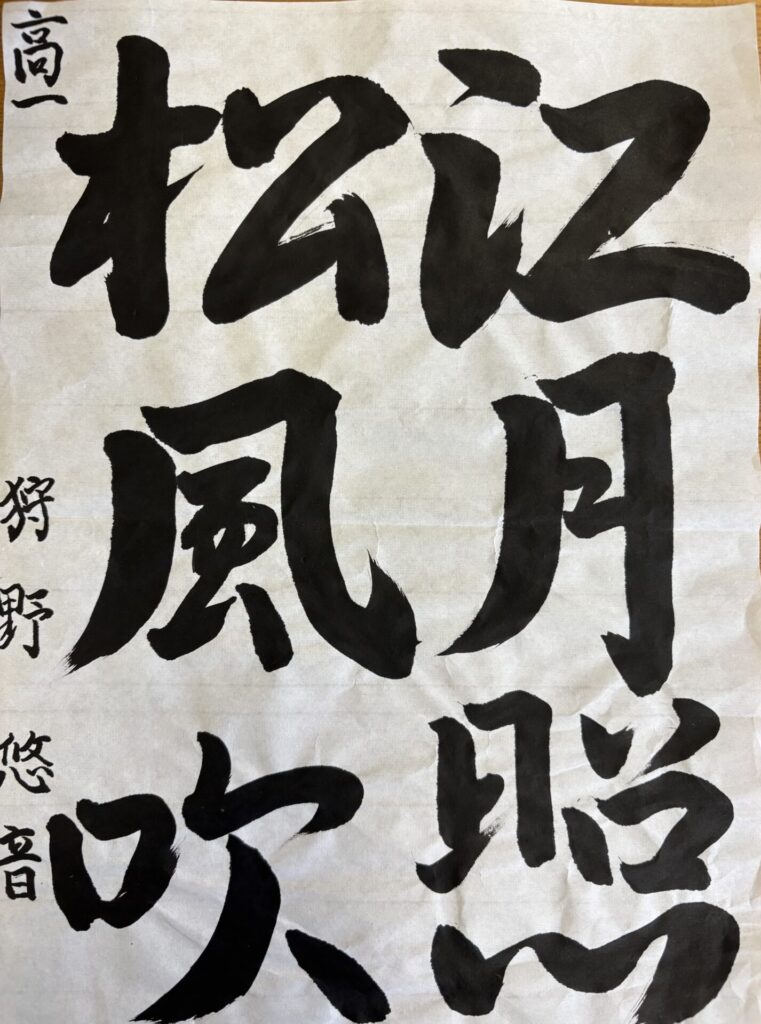 江月照
松風吹
高一
狩野悠音